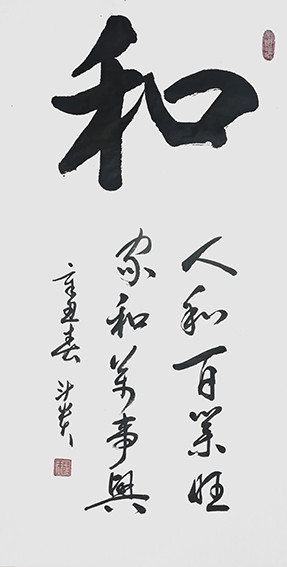 和
人和百業旺
家和萬事興
辛丑春